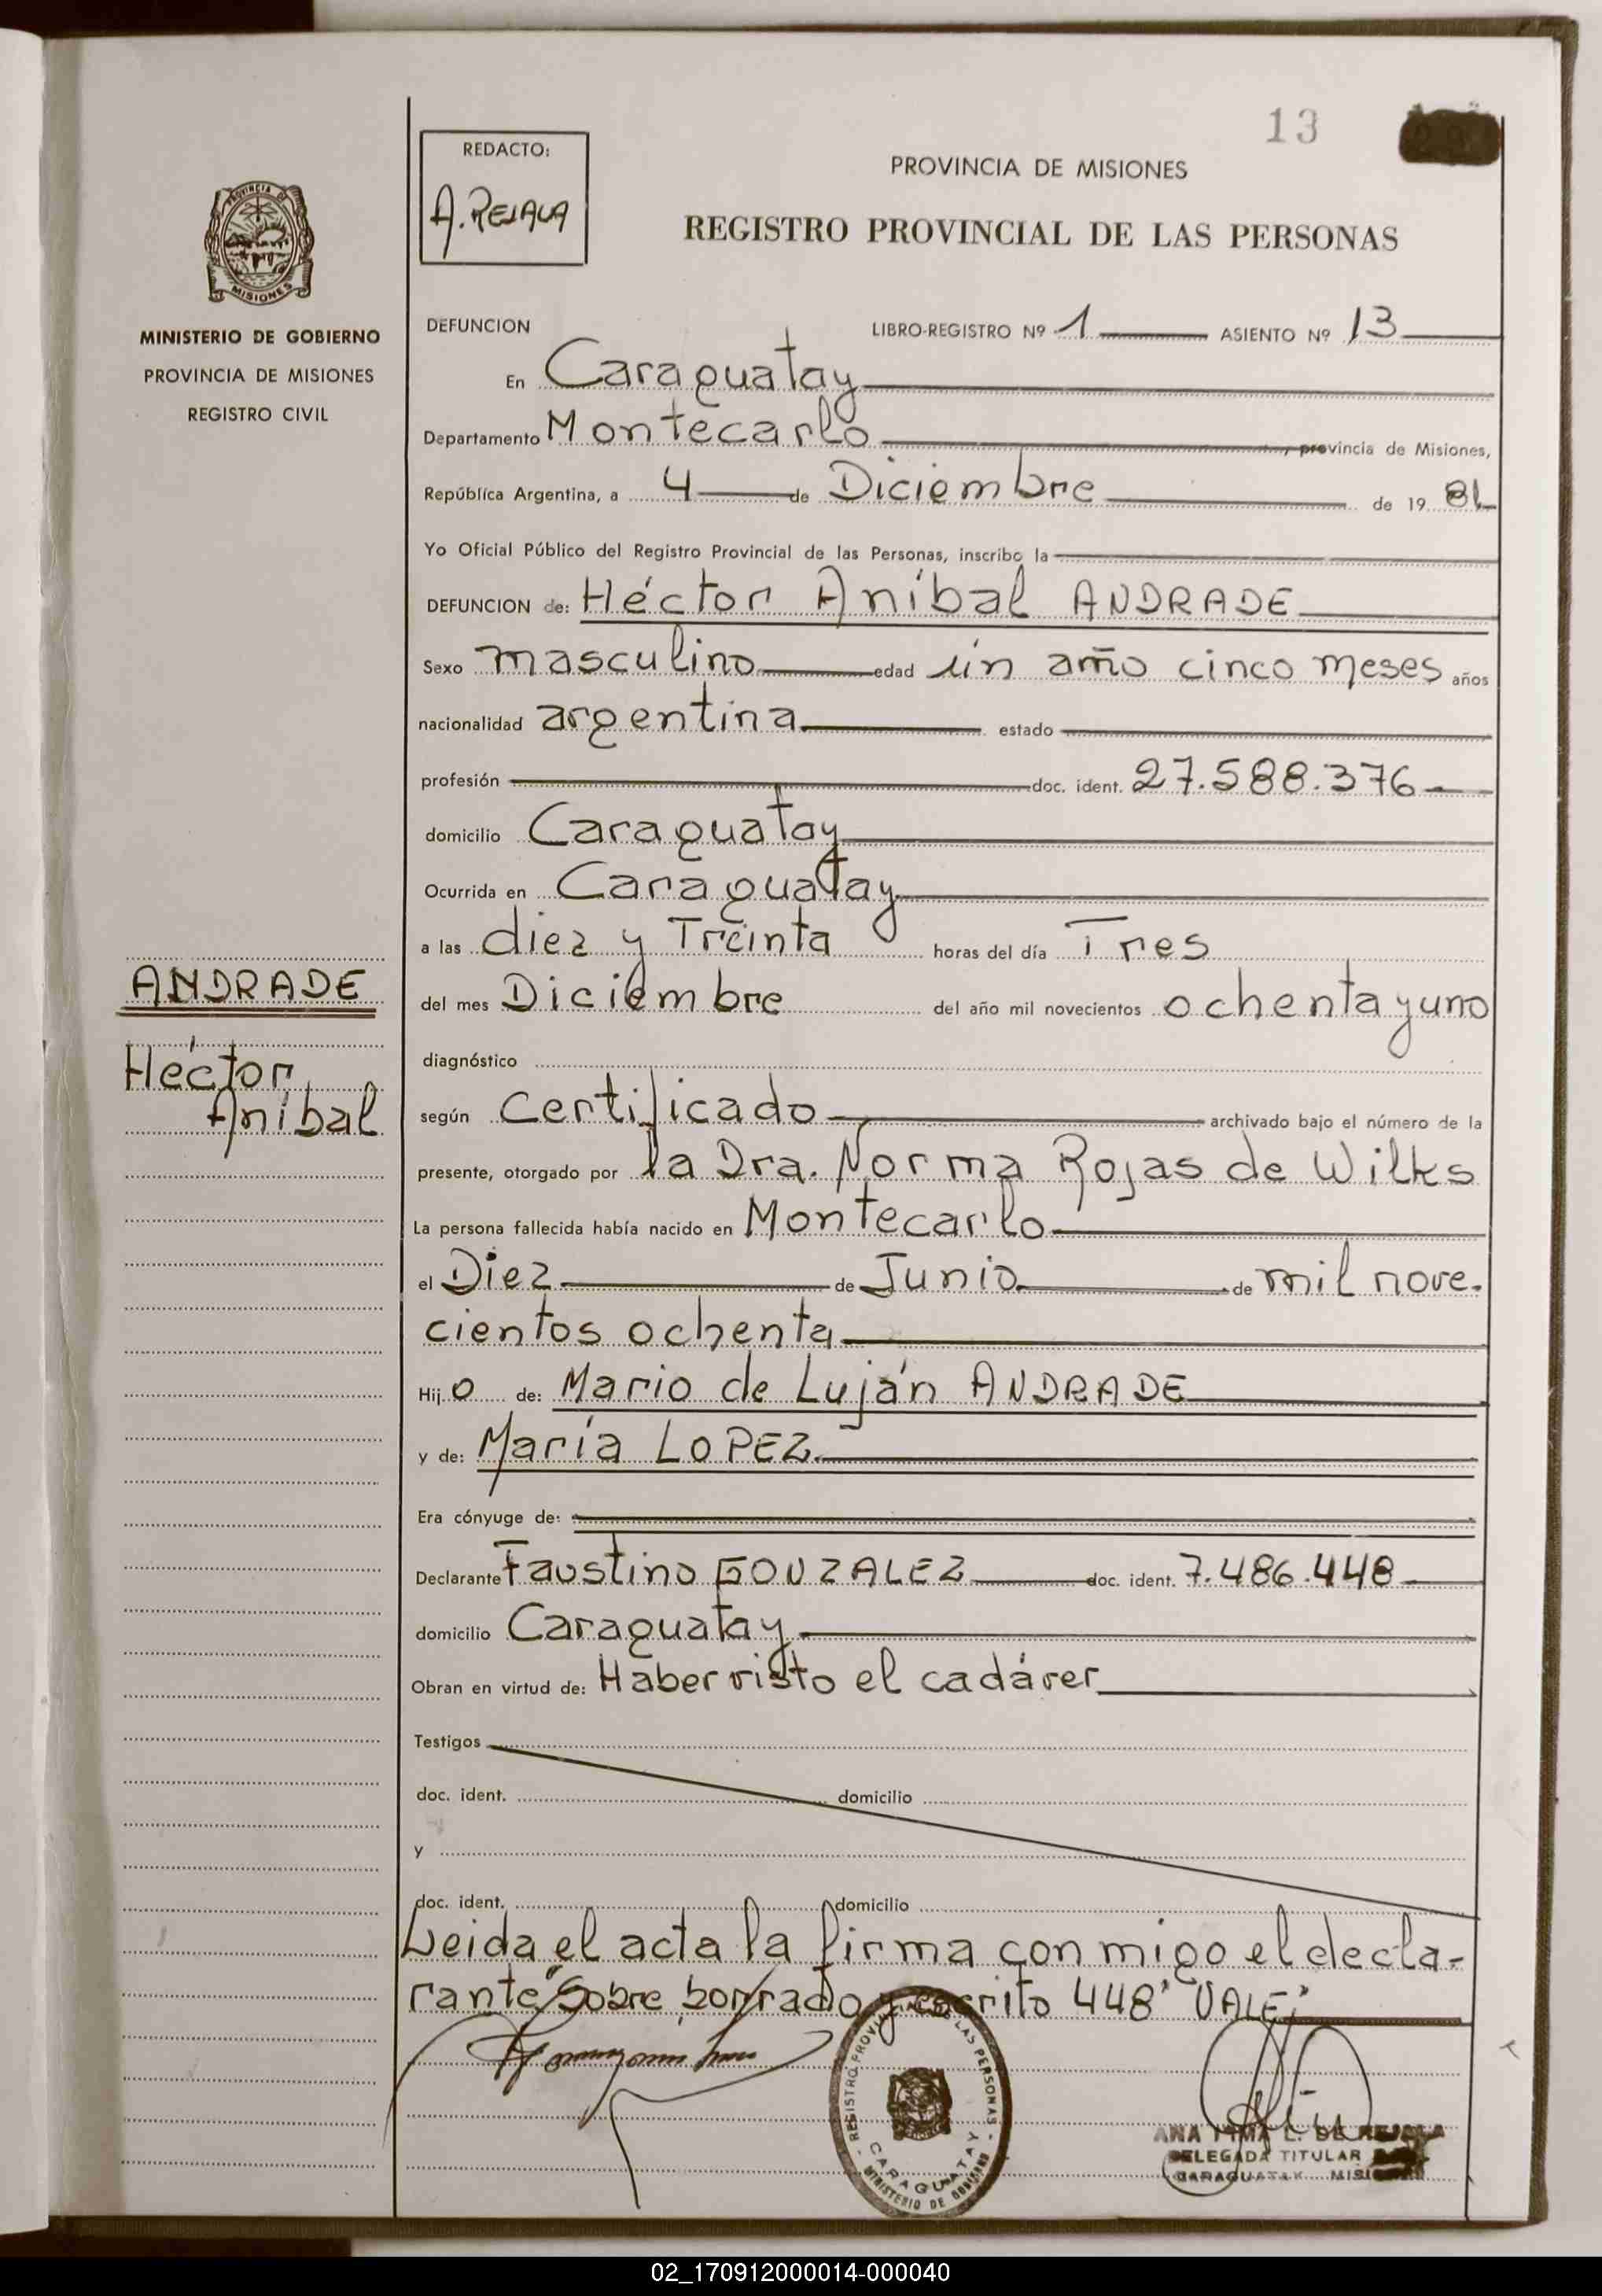 13
REDACTO:
A. REJALA
PROVINCIA DE MISIONES
REGISTRO PROVINCIAL DE LAS PERSONAS
PROVINCIA DE
MISIONES
MINISTERIO DE GOBIERNO
PROVINCIA DE MISIONES
REGISTRO CIVIL
DEFUNCION LIBRO-REGISTRO Nº 1 ASIENTO Nº 13
En Caraguatay
Departamento Montecarlo, provincia de Misiones,
República Argentina, a 4 de Diciembre de 19 81
Yo Oficial Público del Registro Provincial de las Personas, inscribo la
DEFUNCION de: Héctor Aníbal ANDRADE
Sexo masculino edad ún año cinco meses años
nacionalidad argentina estado
profesión doc. ident. 27.588.376
domicilio Caraguatay
Ocurrida en Caraguatay
a las diez y Treinta horas del día Tres
del mes Diciembre del año mil novecientos ochenta y uno
diagnóstico
según Certificado archivado bajo el número de la
presente, otorgado por la Dra. Norma Rojas de Wilks
La persona fallecida había nacido en Montecarlo
el Diez de Junio de mil nove-
cientos ochenta
Hijo de: Mario de Luján ANDRADE
y de: María LOPEZ
Era cónyuge de:
Declarante Faustino GONZALEZ doc. ident. 7.486.448
domicilio Caraguatay
Obran en virtud de: Haber visto el cadáver
Testigos
doc. ident. domicilio
y
doc. ident. domicilio
Leida el acta la firma conmigo el decla-
rante "Sobre borrado y escrito 448" VALE;
ANDRADE
Héctor
Aníbal
REGISTRO PROVINCIAL DE LAS PERSONAS
CARAGUATAY
MINISTERIO DE GOBIERNO
ANA L. DE REJALA
DELEGADA TITULAR
CARAGUATAY
02_170912000014-000040